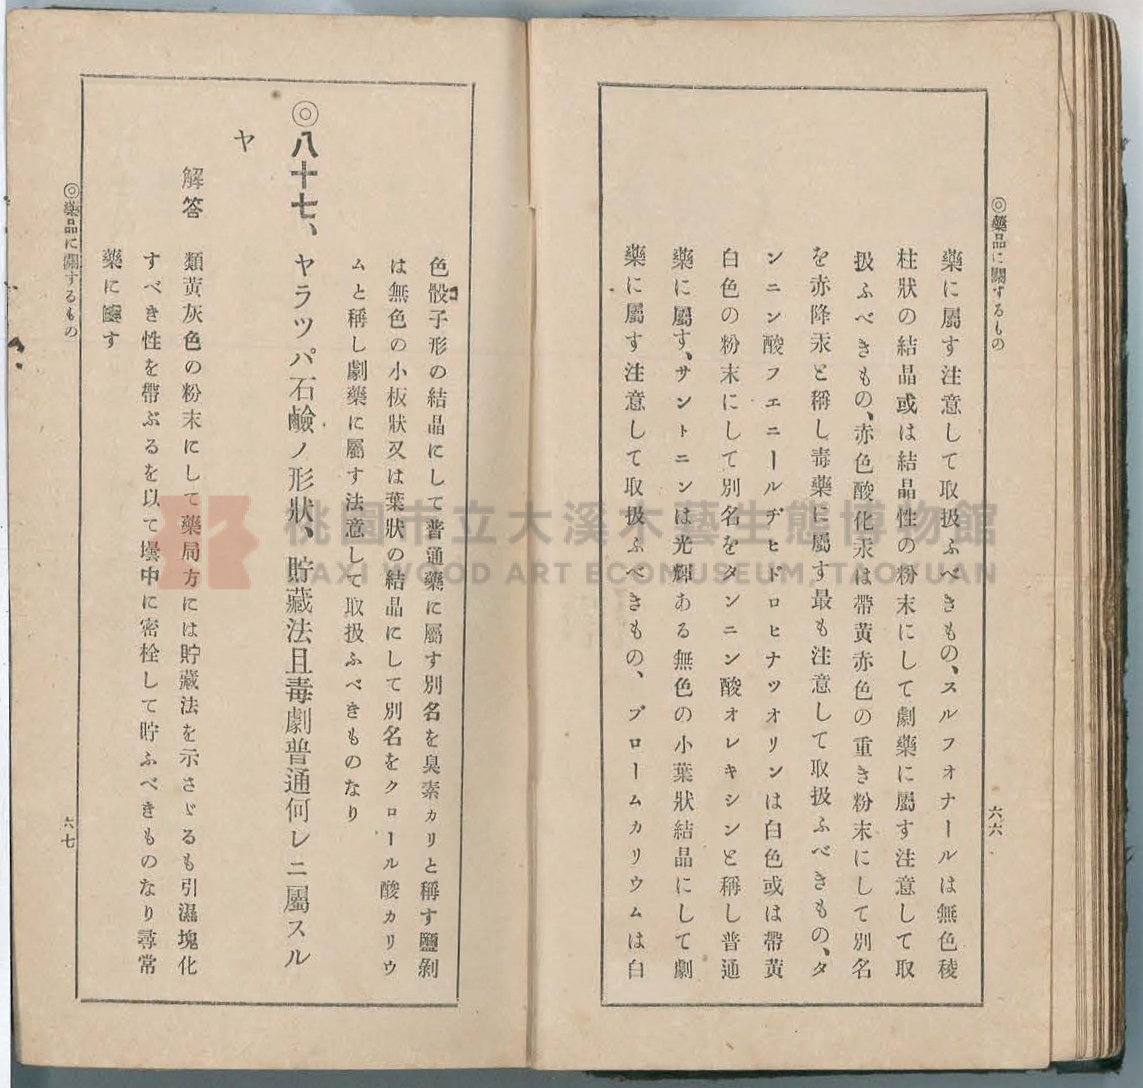 ◎藥品に關するもの
六六
藥に屬す注意して取扱ふべきもの、スルフオナールは無色稜
柱狀の結晶或は結晶性の粉末にして劇藥に屬す注意して取
扱ふべきもの、赤色酸化汞は帶黃赤色の重き粉末にして別名
を赤降汞と稱し毒藥に屬す最も注意して取扱ふべきもの、タ
ンニン酸フエニールヂヒドロヒナツオリンは白色或は帶黃
白色の粉末にして別名をタンニン酸オレキシンと稱し普通
藥に屬す、サントニンは光輝ある無色の小葉狀結晶にして劇
藥に屬す注意して取扱ふべきもの、ブロームカリウムは白
色骰子形の結晶にして普通藥に屬す別名を臭素カリと稱す鹽剝
は無色の小板狀又は葉狀の結晶にして別名をクロール酸カリウ
ムと稱し劇藥に屬す法意して取扱ふべきものなり
◎八十七、ヤラツパ石鹼ノ形狀、貯藏法且毒劇普通何レニ屬スル
ヤ
解答 類黃灰色の粉末にして藥局方には貯藏法を示さゞるも引濕塊化
すべき性を帶ぶるを以て壜中に密栓して貯ふべきものなり尋常
藥に屬す
◎藥品に關するもの
六七
桃園市立大溪木藝生態博物館
DAXI WOOD ART ECOMUSEUM, TAOYUAN